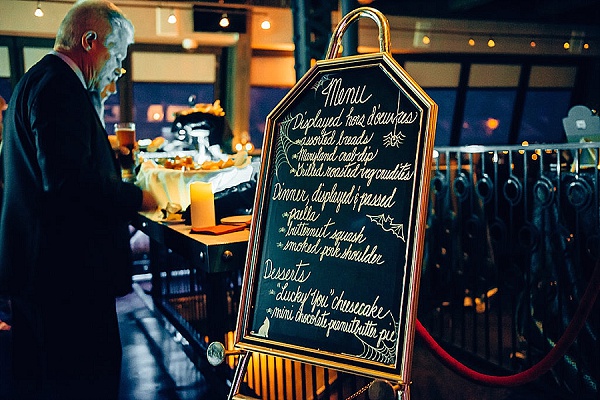 Menu
Displayed hors d'oeuvres
assorted breads
Maryland crab dip
Grilled roasted veg crudites
Dinner, displayed & passed
paella
butternut squash
smoked pork shoulder
Desserts
"Lucky You" cheesecake
mini chocolate peanutbutter pie